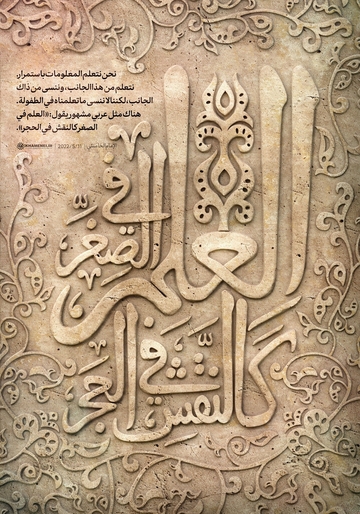 نحن نتعلم المعلومات باستمرار.
نتعلم من هذا الجانب، وننسى من ذاك
الجانب، لكننا لا ننسى ما تعلمناه في الطفولة.
هناك مثل عربي مشهور يقول: «العلم في
الصغر كالنقش في الحجر».
الإمام الخامنئي | 2022/5/11 | KHAMENEI.IR
العلم في الصِّغَر
كَالنَّقشِ في الحَجَر